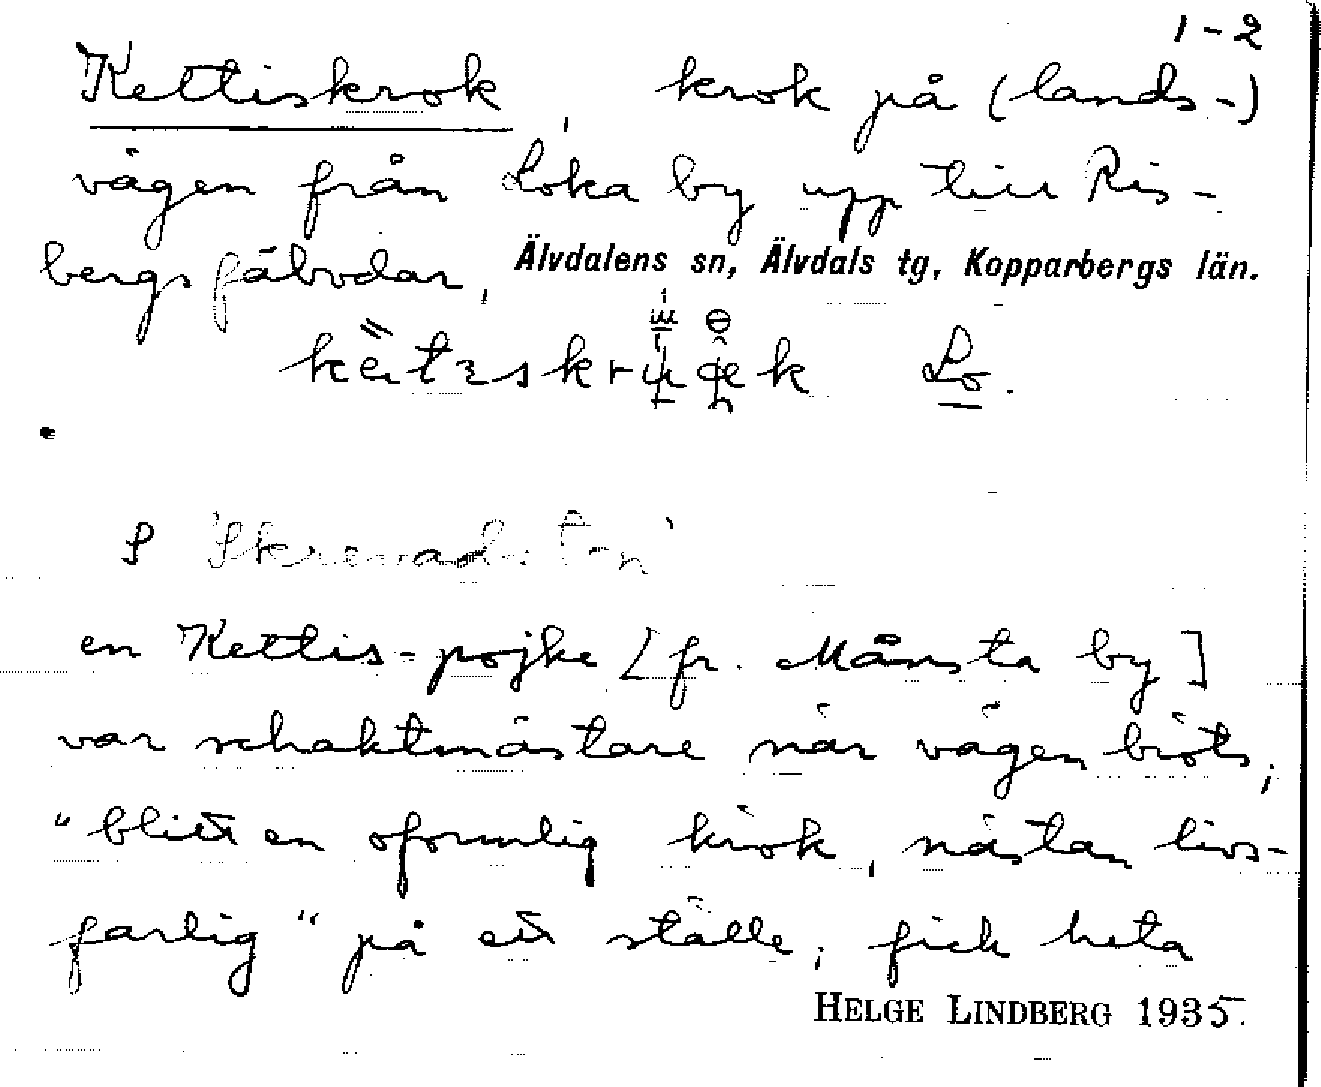 1-2
Kettiskrok, krok på (lands-)
vägen från Loka by upp till Ris-
bergs fäbodar, Älvdalens sn, Älvdals tg, Kopparbergs län.
Lo.
S 'Skrevadsten'
en Kettis-pojke [fr. Månsta by]
var schaktmästare när vägen bröts,
"blitt en oformlig krok, nästan livs-
farlig" på ett ställe, fick heta
HELGE LINDBERG 1935.